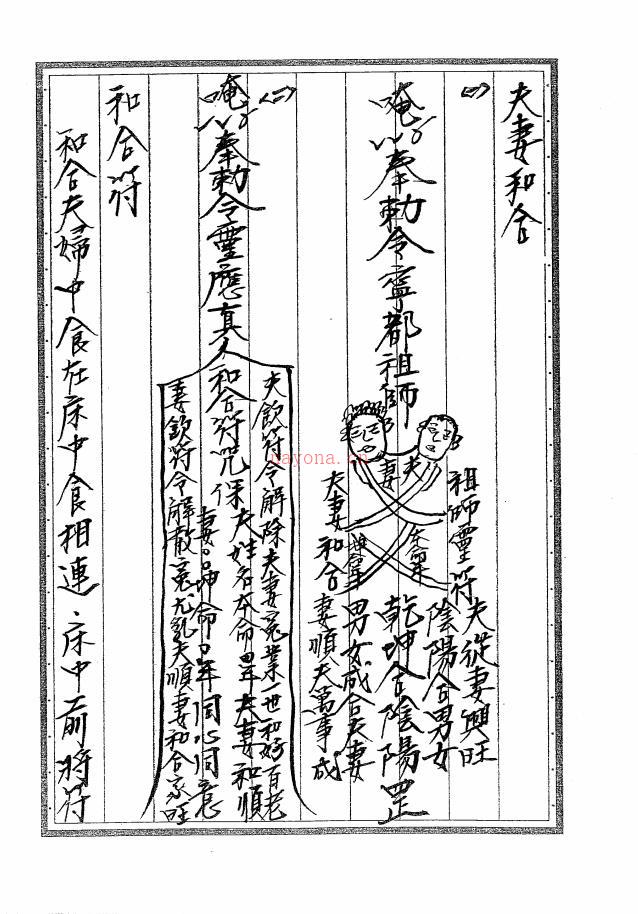 夫妻和合
(一)
唵奉勅令寧都祖師
妻
夫
祖師靈符夫從妻興旺
陰陽合男女
乾坤合陰陽罡
男女成合夫妻
夫妻和合妻順夫萬事成
(二)
唵奉勅令靈應真人和合符咒保夫姓名本命年夫妻和順
夫飲符令解除夫妻冤業一世和好百老
妻坤命年同心同意
妻飲符令解散冤尤乱夫順妻和合家旺
和合符
和合夫婦中食在床中食相連、床中前將符
nayona.cn